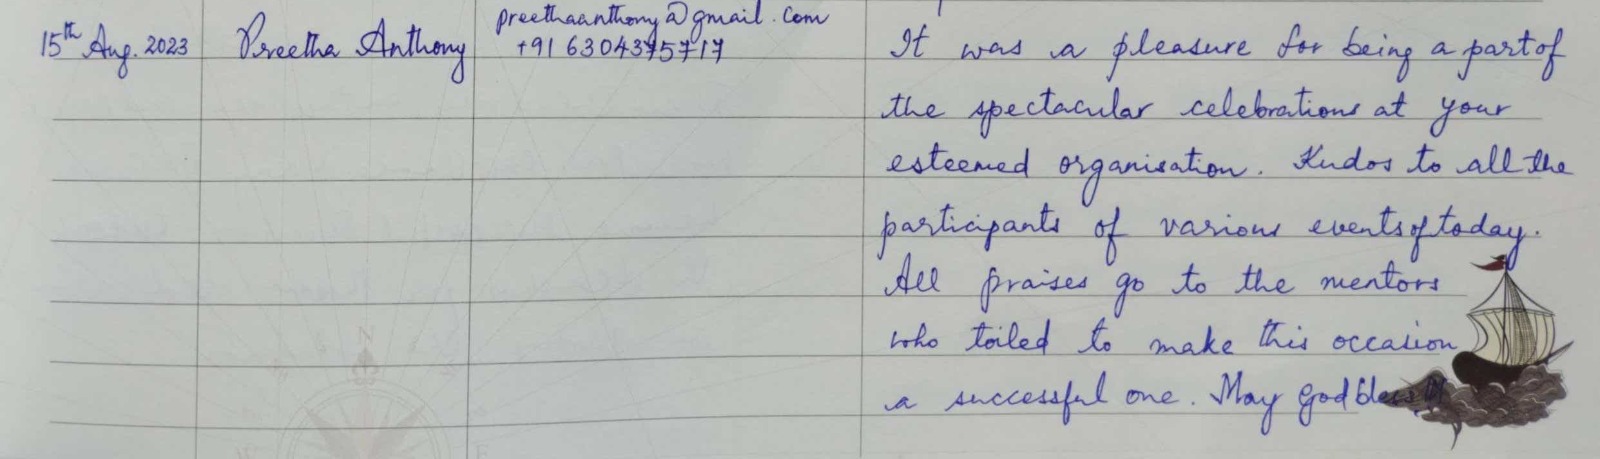 15th Aug. 2023
Preetha Anthony
preethaanthony@gmail.com
+91 6304375717
It was a pleasure for being a part of
the spectacular celebrations at your
esteemed organisation. Kudos to all the
participants of various events of today.
All praises go to the mentors
who toiled to make this occasion
a successful one. May God bless
N
W
E